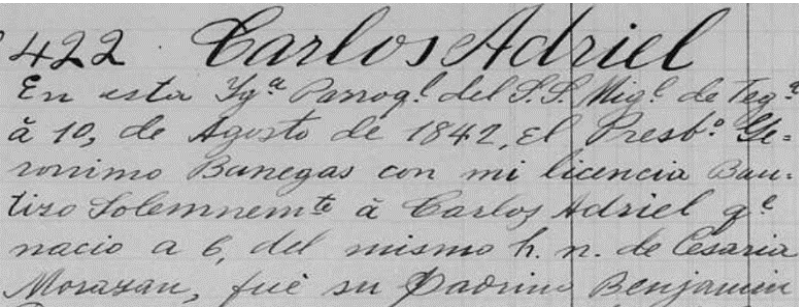 422 Carlos Adriel
En esta Yg.ª Parroq.l del S.S. Mig.l de Teg.ª
à 10, de Agosto de 1842, El Presb.º Ge=
ronimo Banegas con mi licencia Bau=
tizo Solemnem.te à Carlos Adriel q.e
nacio a 6, del mismo h. n. de Cesaria
Morazan, fué su Padrino Benjamin